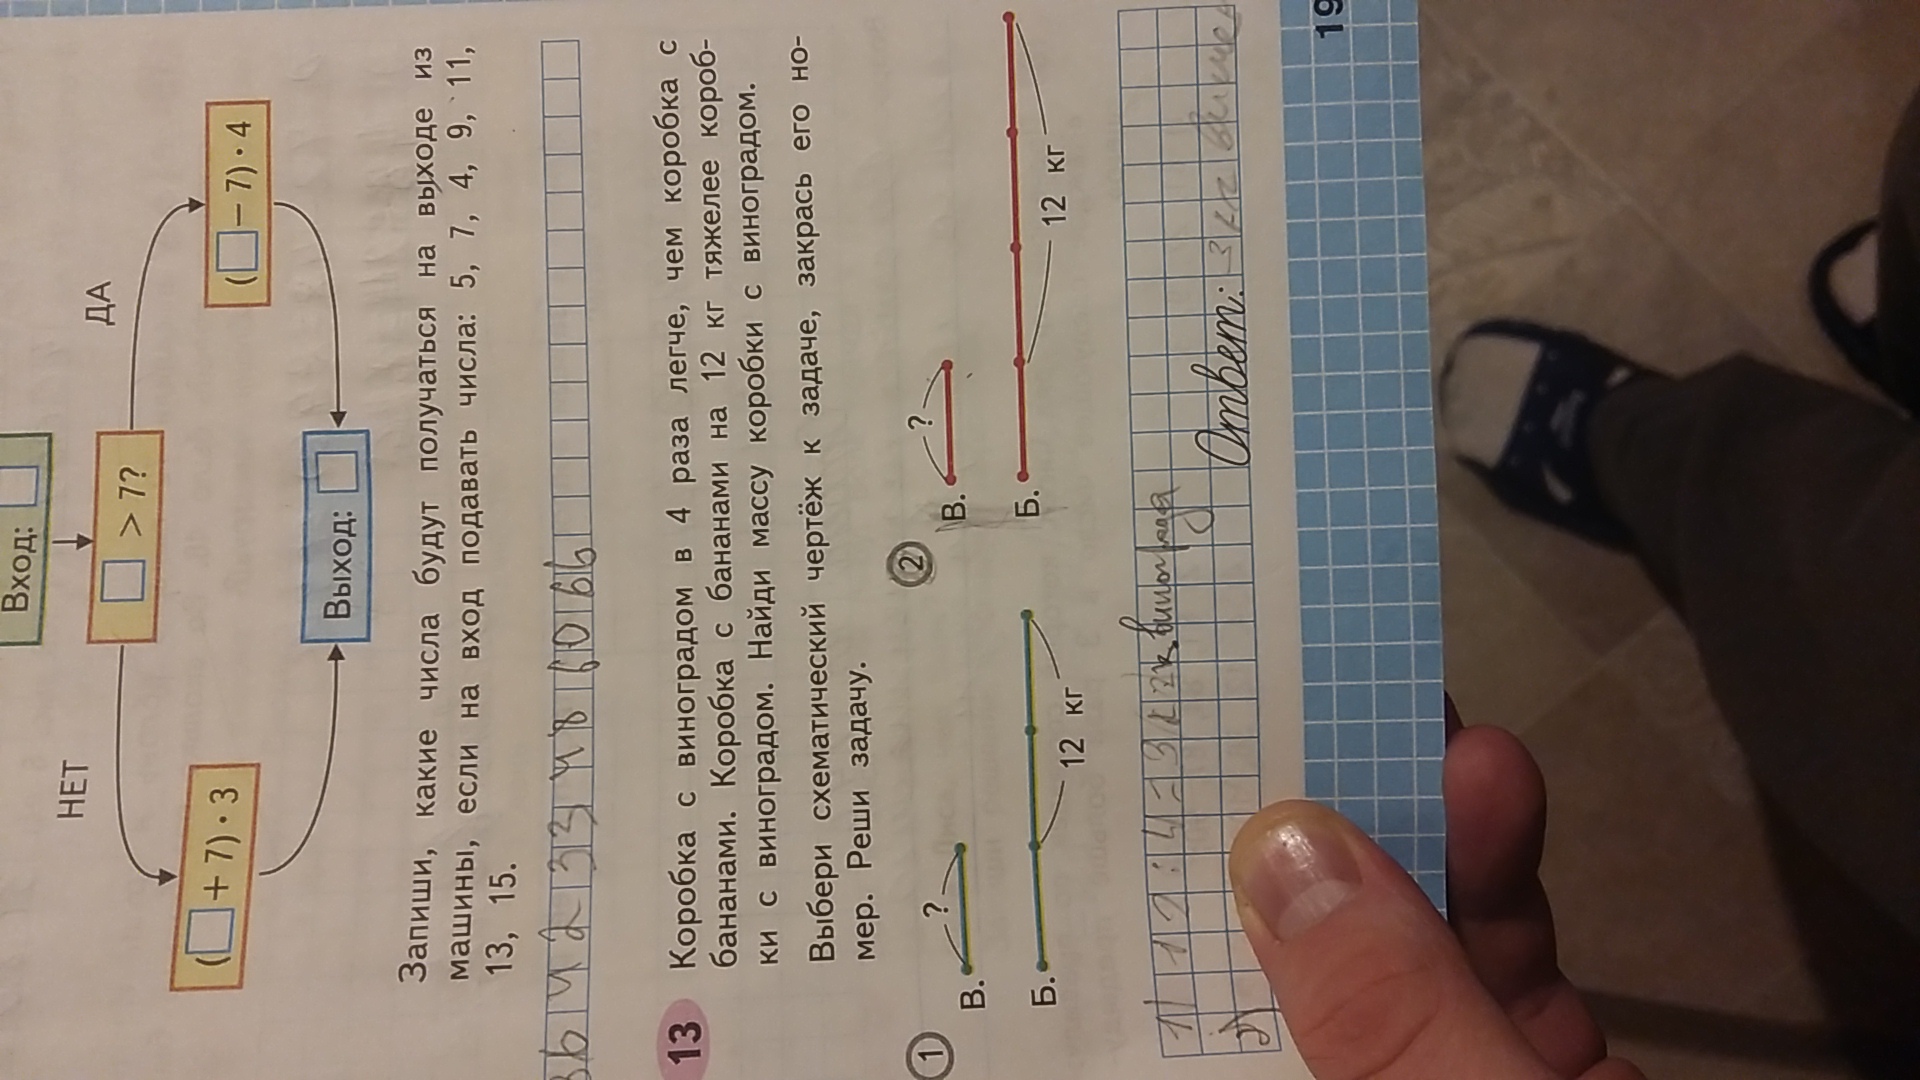 Вход:
> 7?
НЕТ
ДА
( + 7) · 3
( − 7) · 4
Выход:
Запиши, какие числа будут получаться на выходе из
машины, если на вход подавать числа: 5, 7, 4, 9, 11,
13, 15.
13 Коробка с виноградом в 4 раза легче, чем коробка с
бананами. Коробка с бананами на 12 кг тяжелее короб-
ки с виноградом. Найди массу коробки с виноградом.
Выбери схематический чертёж к задаче, закрась его но-
мер. Реши задачу.
1
В. ?
Б. 12 кг
2
В. ?
Б. 12 кг
1) 12 : 4 = 3 винограда
2)
Ответ: 3 кг
19